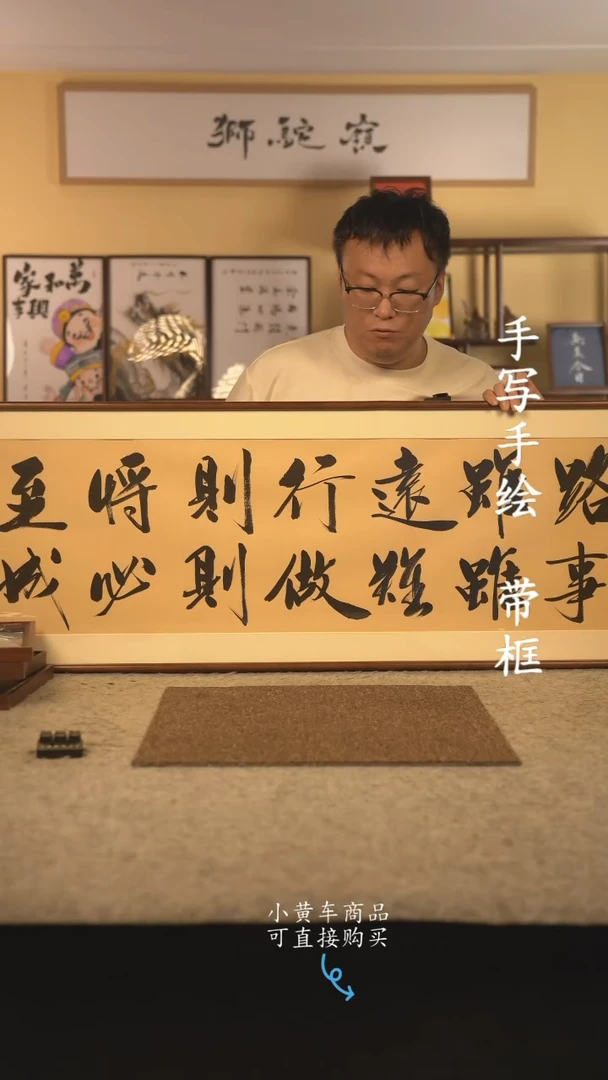 獅駝嶺
家和萬
事興
路雖遠行則將至
事雖難做則必成
手写手绘 带框
小黄车商品
可直接购买